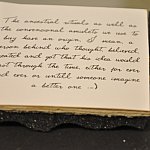 The ancestral rituals as well as
the conventional amulets we use to
buy have an origin. I mean, a
person behind who thought, believed,
created and got that his idea would
last through the time, either for ever
and ever or untill someone imagine
a better one ...)